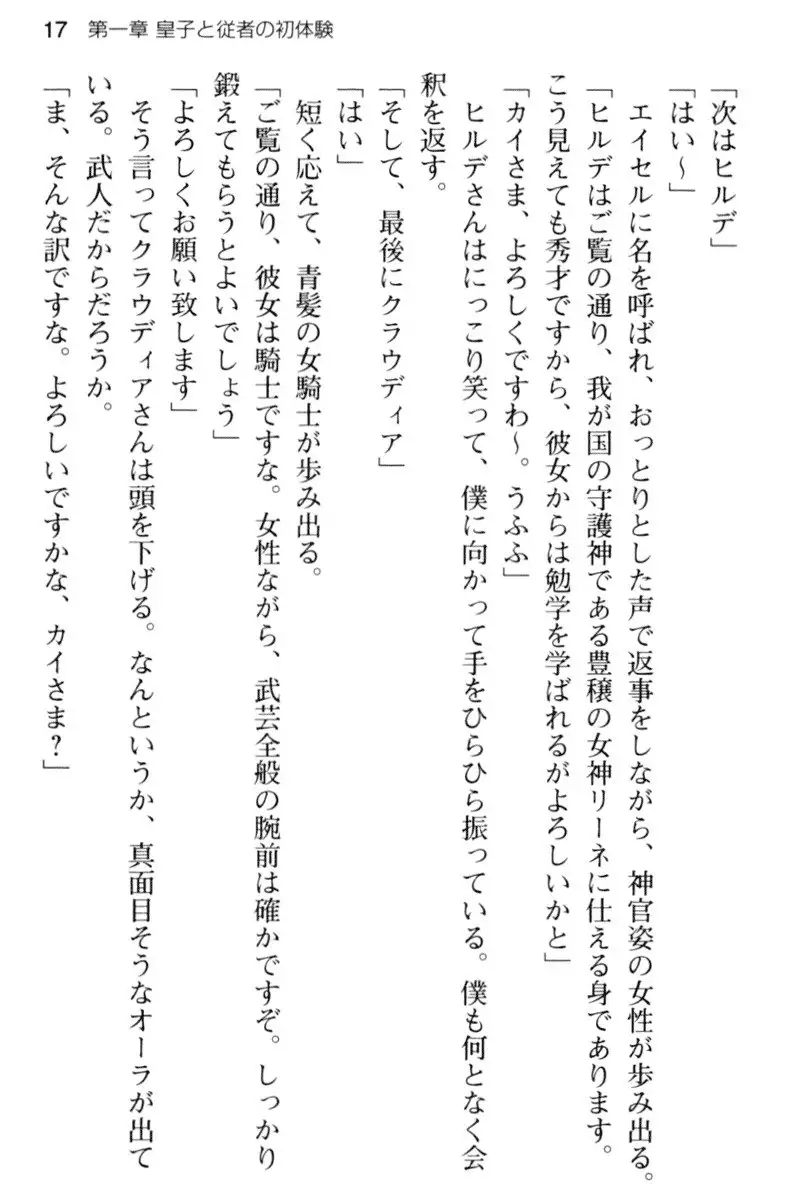 17 第一章 皇子と従者の初体験
「次はヒルデ」
「はい～」
　エイセルに名を呼ばれ、おっとりとした声で返事をしながら、神官姿の女性が歩み出る。
「ヒルデはご覧の通り、我が国の守護神である豊穣の女神リーネに仕える身であります。
こう見えても秀才ですから、彼女からは勉学を学ばれるがよろしいかと」
「カイさま、よろしくですわ～。うふふ」
　ヒルデさんはにっこり笑って、僕に向かって手をひらひら振っている。僕も何となく会
釈を返す。
「そして、最後にクラウディア」
「はい」
　短く応えて、青髪の女騎士が歩み出る。
「ご覧の通り、彼女は騎士ですな。女性ながら、武芸全般の腕前は確かですぞ。しっかり
鍛えてもらうとよいでしょう」
「よろしくお願い致します」
　そう言ってクラウディアさんは頭を下げる。なんというか、真面目そうなオーラが出て
いる。武人だからだろうか。
「ま、そんな訳ですな。よろしいですかな、カイさま？」